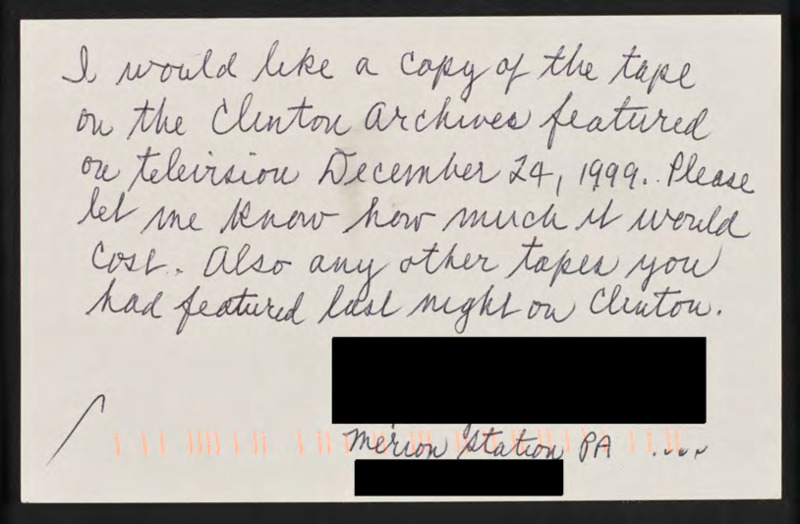 I would like a copy of the tape
on the Clinton Archives featured
on televirsion December 24, 1999. Please
let me know how much it would
cost. Also any other tapes you
had featured last night on Clinton.
Merion Station PA